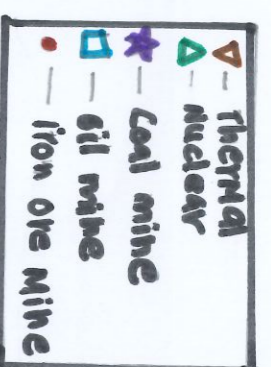 Thermal
Nuclear
Coal mine
oil mine
Iron ore Mine